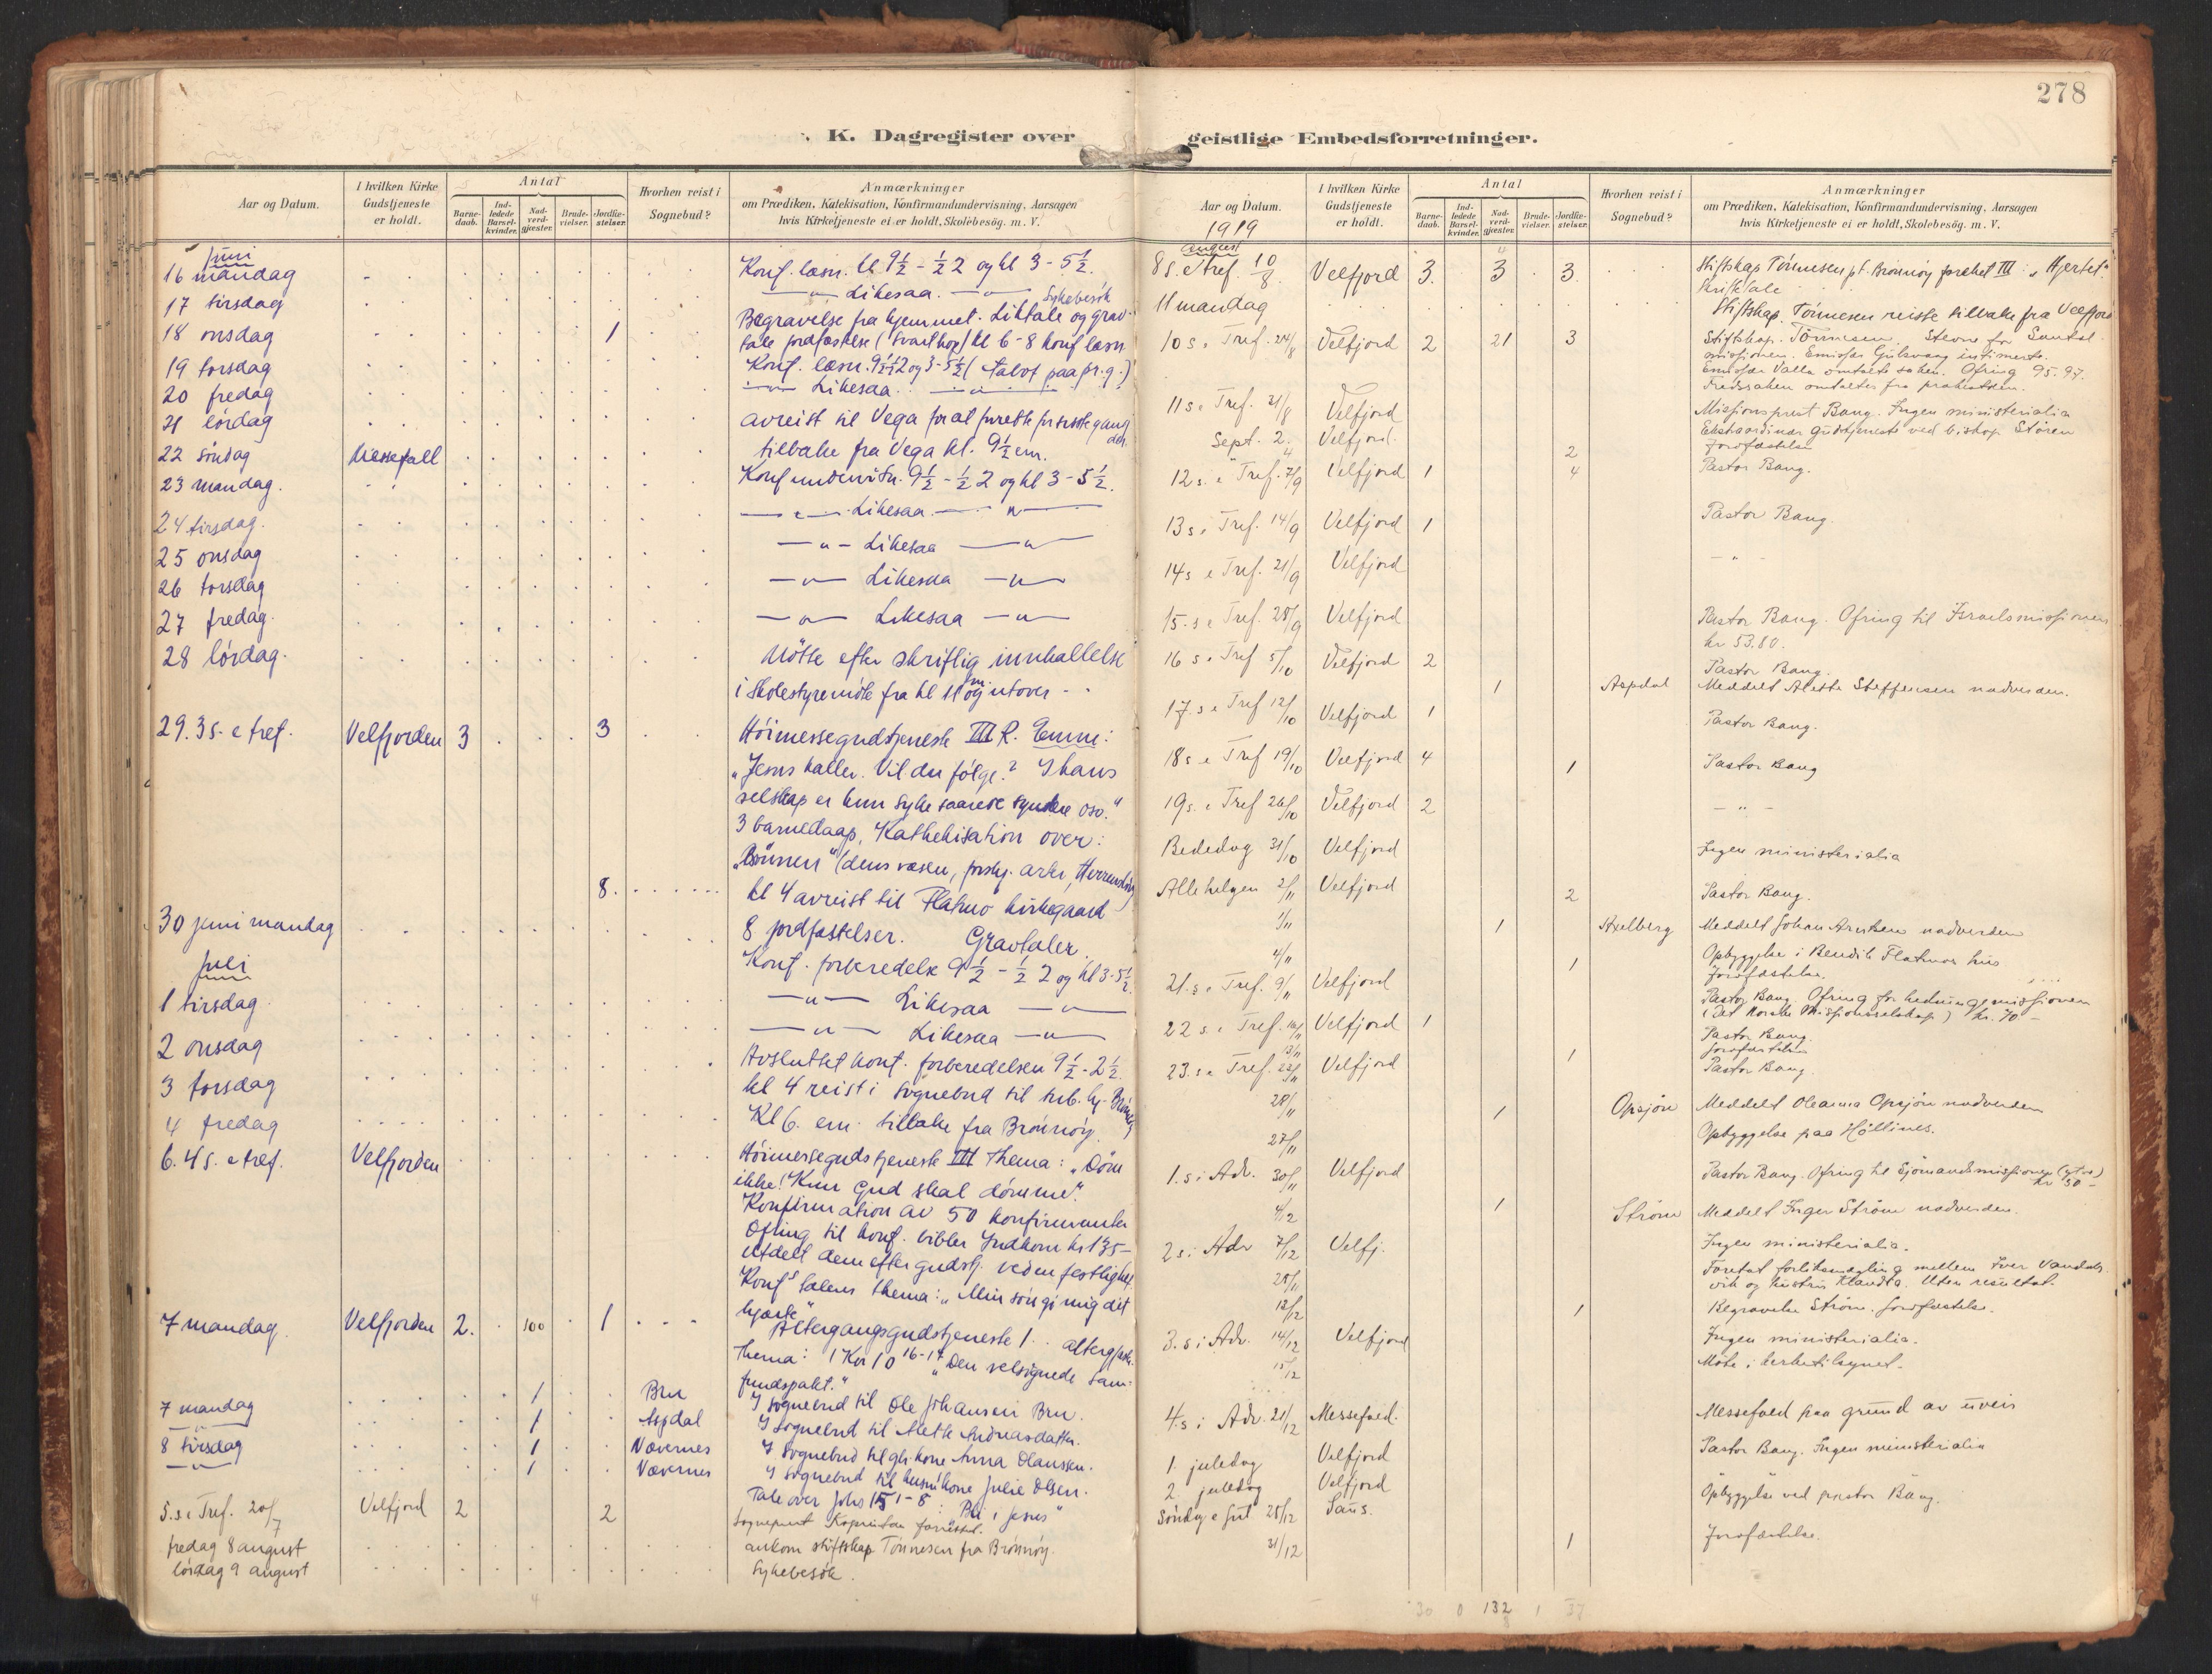 278
K. Dagregister over
Aar og Datum.
I hvilken Kirke Gudstjeneste er holdt.
Antal
Barne-daab.
Ind-ledede Barsel-kvinder.
Nad-verd-gjæster.
Brude-vielser.
Jordfæ-stelser.
Hvorhen reist i Sognebud?
Anmærkninger
om Prædiken, Katekisation, Konfirmandundervisning, Aarsagen
hvis Kirketjeneste ei er holdt, Skolebesög. m. V.
Juni
16 mandag Konf. læsn. kl 9½ - ½2 og kl 3 - 5½.
17 tirsdag Likesaa. Sykebesök
18 onsdag 1 Begravelse fra hjemmet. Liktale og grav-
tale jordfæstelse kl 6-8 konf læsn
19 torsdag Konf. læsn. 9½-½2 og 3-5½
20 fredag Likesaa.
21 lördag avreist til Vega for at
22 söndag Messefall tilbake fra Vega kl. 9½ em.
23 mandag. Konf undervisn. 9½ - ½2 og kl 3 - 5½.
24 tirsdag. Likesaa
25 onsdag Likesaa
26 torsdag Likesaa
27 fredag. Likesaa
28 lördag. Mötte efter skriftlig innkallelse
i Skolestyremöte fra kl 11 og utover
29. 3 s. e tref. Velfjorden 3 3 Höimessegudstjeneste III R. Emne:
"Jesus kaller. Vil du fölge? I hans
selskap er kun syke saarede syndere oso."
3 barnedaap, Kathekisation over:
"Bönnen" (dens væsen,
8. kl 4 avreist til Flatmo kirkegaard
30 juni mandag 8 jordfæstelser. Gravtaler.
Juli Konf. forberedelse 9½ - ½2 og kl 3-5½.
1 tirsdag. Likesaa
2 onsdag Likesaa
3 torsdag Avsluttet konf. forberedelsen 9½ - 2½.
kl 4 reist i sognebud til
4 fredag Kl 6. em. tilbake fra Brönnöy.
6. 4 s. e tref. Velfjorden Höimessegudstjeneste III Thema: "Döm
ikke! Kun Gud skal dömme".
Konfirmation av 50 konfirmanter
Ofring til konf. bibler Indkom kr 135-
utdelt dem efter gudstj. ved en festlighet.
Konf's talens thema: "Min sön gi mig dit
hjærte"
7 mandag. Velfjorden 2. 100 1 Altergangsgudstjeneste
Thema: 1 Kor 10 16-17 "Den velsignede sam-
fundspakt."
7 mandag 1 Bru I sognebud til Ole Johansen Bru.
1 Aspdal I sognebud til Mette Andreasdatter.
8 tirsdag 1 Nævernes I sognebud til gb. kone Anna Olaussen.
1 Nævernes I sognebud til kone Julie Olsen.
5. s e Tref. 20/7 Velfjord 2 2 Tale over Johs 15 1-8: "Bli i Jesus"
Sogneprest
fredag 8 august ankom stiftskap Tönnesen fra Brönnöy.
lördag 9 august Sykebesök.
geistlige Embedsforretninger.
Aar og Datum.
I hvilken Kirke Gudstjeneste er holdt.
Antal
Barne-daab.
Ind-ledede Barsel-kvinder.
Nad-verd-gjæster.
Brude-vielser.
Jordfæ-stelser.
Hvorhen reist i Sognebud?
Anmærkninger
om Prædiken, Katekisation, Konfirmandundervisning, Aarsagen
hvis Kirketjeneste ei er holdt, Skolebesög. m. V.
1919
august
8 s. e tref. 10/8 Velfjord 3. 3 3 Stiftskap Tönnesen pt. Brönnöy "Hjertet."
Skriftetale
11 mandag Stiftskap. Tönnesen reiste tilbake fra Velfjord
10 s. e Tref. 24/8 Velfjord 2 21 3 Stiftskap. Tönnesen. Stevne for Santal-
missionen. Emissær Gulsvang intimerte.
Emissær Valla omtalte saken. Ofring 95.97.
Fredssaken omtaltes fra prækestolen.
11 s e Tref. 31/8 Velfjord Missionsprest Bang. Ingen ministerialia
Sept. 2. Velfjord. Ekstraordinær gudstjeneste ved biskop Stören
4 2 Jordfæstelse
12 s. e Tref. 7/9 Velfjord 1 4 Pastor Bang.
13 s. e Tref. 14/9 Velfjord 1 Pastor Bang.
14 s e Tref. 21/9 Velfjord - " -
15. s e Tref. 28/9 Velfjord Pastor Bang. Ofring til Israelsmissionen
kr 53.80.
16 s. e Tref 5/10 Velfjord 2 Pastor Bang.
1 Aspdal Meddelt Alette Steffensen nadverden.
17. s e Tref 12/10 Velfjord 1 Pastor Bang.
18 s e Tref 19/10 Velfjord 4 1 Pastor Bang
19 s. e Tref 26/10 Velfjord 2 - " -
Bededag 31/10 Velfjord Ingen ministerialia
Allehelgen 2/11 Velfjord 2 Pastor Bang.
1/11 1 Meddelt Johan nadverden
4/11 1 Opbyggelse i Bendik Flatmos hus
Jordfæstelse.
21. s. e Tref. 9/11 Velfjord Pastor Bang. Ofring for hedningemissionen
(det Norske Missionsselskap) kr. 70.-
22 s. e Tref. 16/11 Velfjord 1 Pastor Bang.
13/11 1 Jordfæstelse
23. s e Tref. 23/11 Velfjord Pastor Bang.
28/11 1 Opsjön Meddelt Oleanna Opsjön nadverden
27/11 Opbyggelse paa Höllines.
1. s i Adv. 30/11 Velfjord Pastor Bang. Ofring til Sjömandsmissionen kr 50-
4/12 1 Ström Meddelt Inger Ström nadverden.
2 s i Adv 7/12 Velfj. Ingen ministerialia.
28/11 Foretat forliksmægling mellem Iver
vik og hustru Uten resultat.
12/12 1 Begravelse Ström. Jordfæstelse.
3. s i Adv. 14/12 Velfjord Ingen ministerialia.
15/12 Möte i
4 s i Adv. 21/12 Messefald. Messefald paa grund av uveir
1. juledag Velfjord Pastor Bang. Ingen ministerialia
2. juledag Velfjord Opbyggelse ved pastor Bang.
Söndag e Jul 28/12 Saus.
31/12 1 Jordfæstelse.
30 0 132 1 37